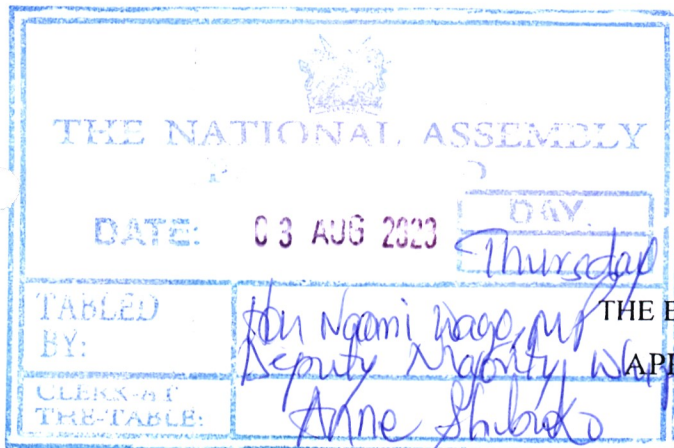 THE NATIONAL ASSEMBLY
DATE: 03 AUG 2023
DAY.
Thursday
TABLED
BY:
Hon Naomi Waqo, MP
Deputy Majority Whip
THE
CLERK-AT
THE-TABLE:
Anne Shibuko